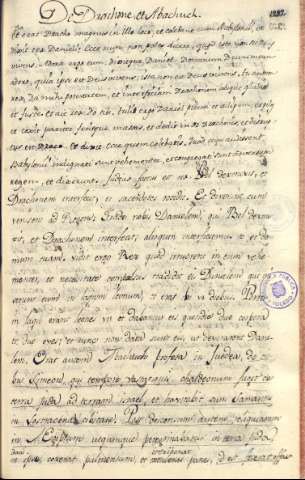 De Drachone, et Abachuch. 1287.
Et erat Dracho magnus in illo loco, et colebant eum Babylonii, et
dixit rex Danieli: Ecce nunc non potes dicere, quod iste non est Deus
vivens. Et ora ergo eum: dixitque Daniel: Dominum Deum meum
adoro, quia ipse est Deus vivens: iste non est Deus vivens. tu autem
rex, da mihi potestatem, et interficiam Drachonem absque gladio
et fuste: et ait rex do tibi. tulit ergo Daniel picem et adipem, et pilos
et coxit pariter, fecitque massas, et dedit in os Drachonis, et disrup-
tus est Draco. et dixit: Ecce quem colebatis. Quod cum audissent
Babylonii indignati sunt vehementer, et congregati sunt adversum
regem, et dixerunt: Judeus factus est rex. Bel destruxit, et
Drachonem interfecit, et sacerdotes occidit. Et dixerunt cum
venissent ad regem: Trade nobis Danielem, qui Bel destru-
xit, et Drachonem interfecit, alioquin interficiemus te et do-
mum tuam. vidit ergo Rex quod irruerent in eum vehe-
menter, et necessitate compulsus tradidit eis Danielem qui mi-
serunt eum in lacum leonum, et erat ibi diebus
in lacu erant leones vii et dabantur eis quotidie duo corpora
et duae oves; et tunc non data sunt eis, ut devorarent Danie-
lem. Erat autem Abachuch Propheta in Judaea, de
tribu Simeon, qui
terra Juda ad terram Israel, et
in habitavit. Post discessum autem
in Aegyptum in terra Juda,
ipse coxerat pulmentum, et intriverat panes,